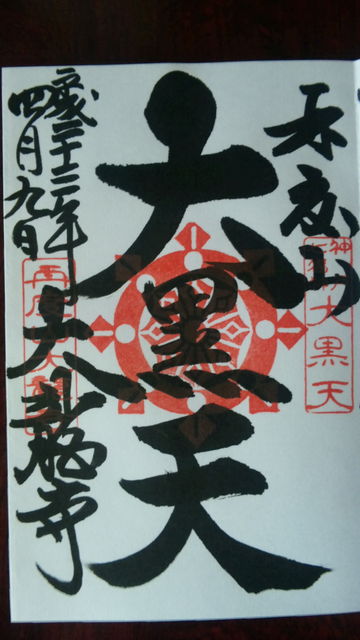 再度山
大黒天
大黒天
平成二十三年
四月九日
大龍寺